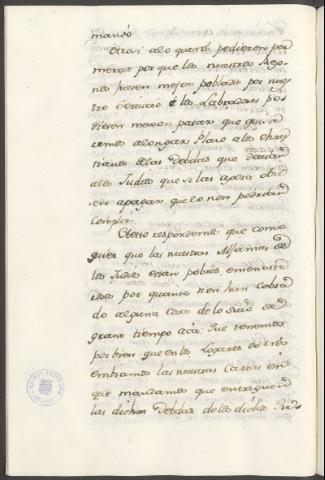 mando
Otrosi alo quarto pedieron por
merced por que los nuestros Rejo-
nes fuesen mejor poblados por nues
tro servicio é los Labradores pos
dieren mexor pasar que quisie
remos alongar Plazo alos chris
tianos delas Debdas que devian
alos Judios que si las agora obie
sen apagar que lo non podrian
complir.
Aesto respondemos que como
quier que las nuestras Aljamas de
los Judios estan pobres é menesté
rosos por quanto non han cobra
do alguna cosa delo suio de
grant tiempo acá. Que tenemos
por bien que en los Logares do nós
embiamos las nuestras Cartas en
que mandamos que entreguen
las dichas Debdas delos dichos Ju